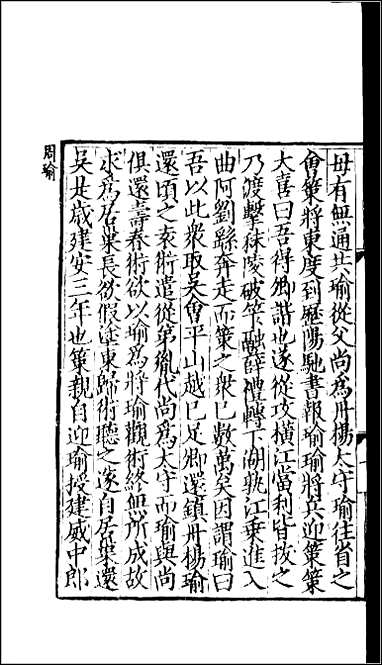 母有無通共瑜從父尚為丹楊太守瑜往省之
會策將東度到歷陽馳書報瑜瑜將兵迎策策
大喜曰吾得卿諧也遂從攻橫江當利皆拔之
乃渡擊秣陵破笮融薛禮轉下湖孰江乗進入
曲阿劉繇奔走而策之衆已數萬矣因謂瑜曰
吾以此衆取吳會平山越已足卿還鎮丹楊瑜
還頃之袁術遣從弟胤代尚為太守而瑜與尚
俱還壽春術欲以瑜為將瑜觀術終無所成故
求為居巢長欲假塗東歸術聽之遂自居巢還
吳是歲建安三年也策親自迎瑜授建威中郎
周瑜